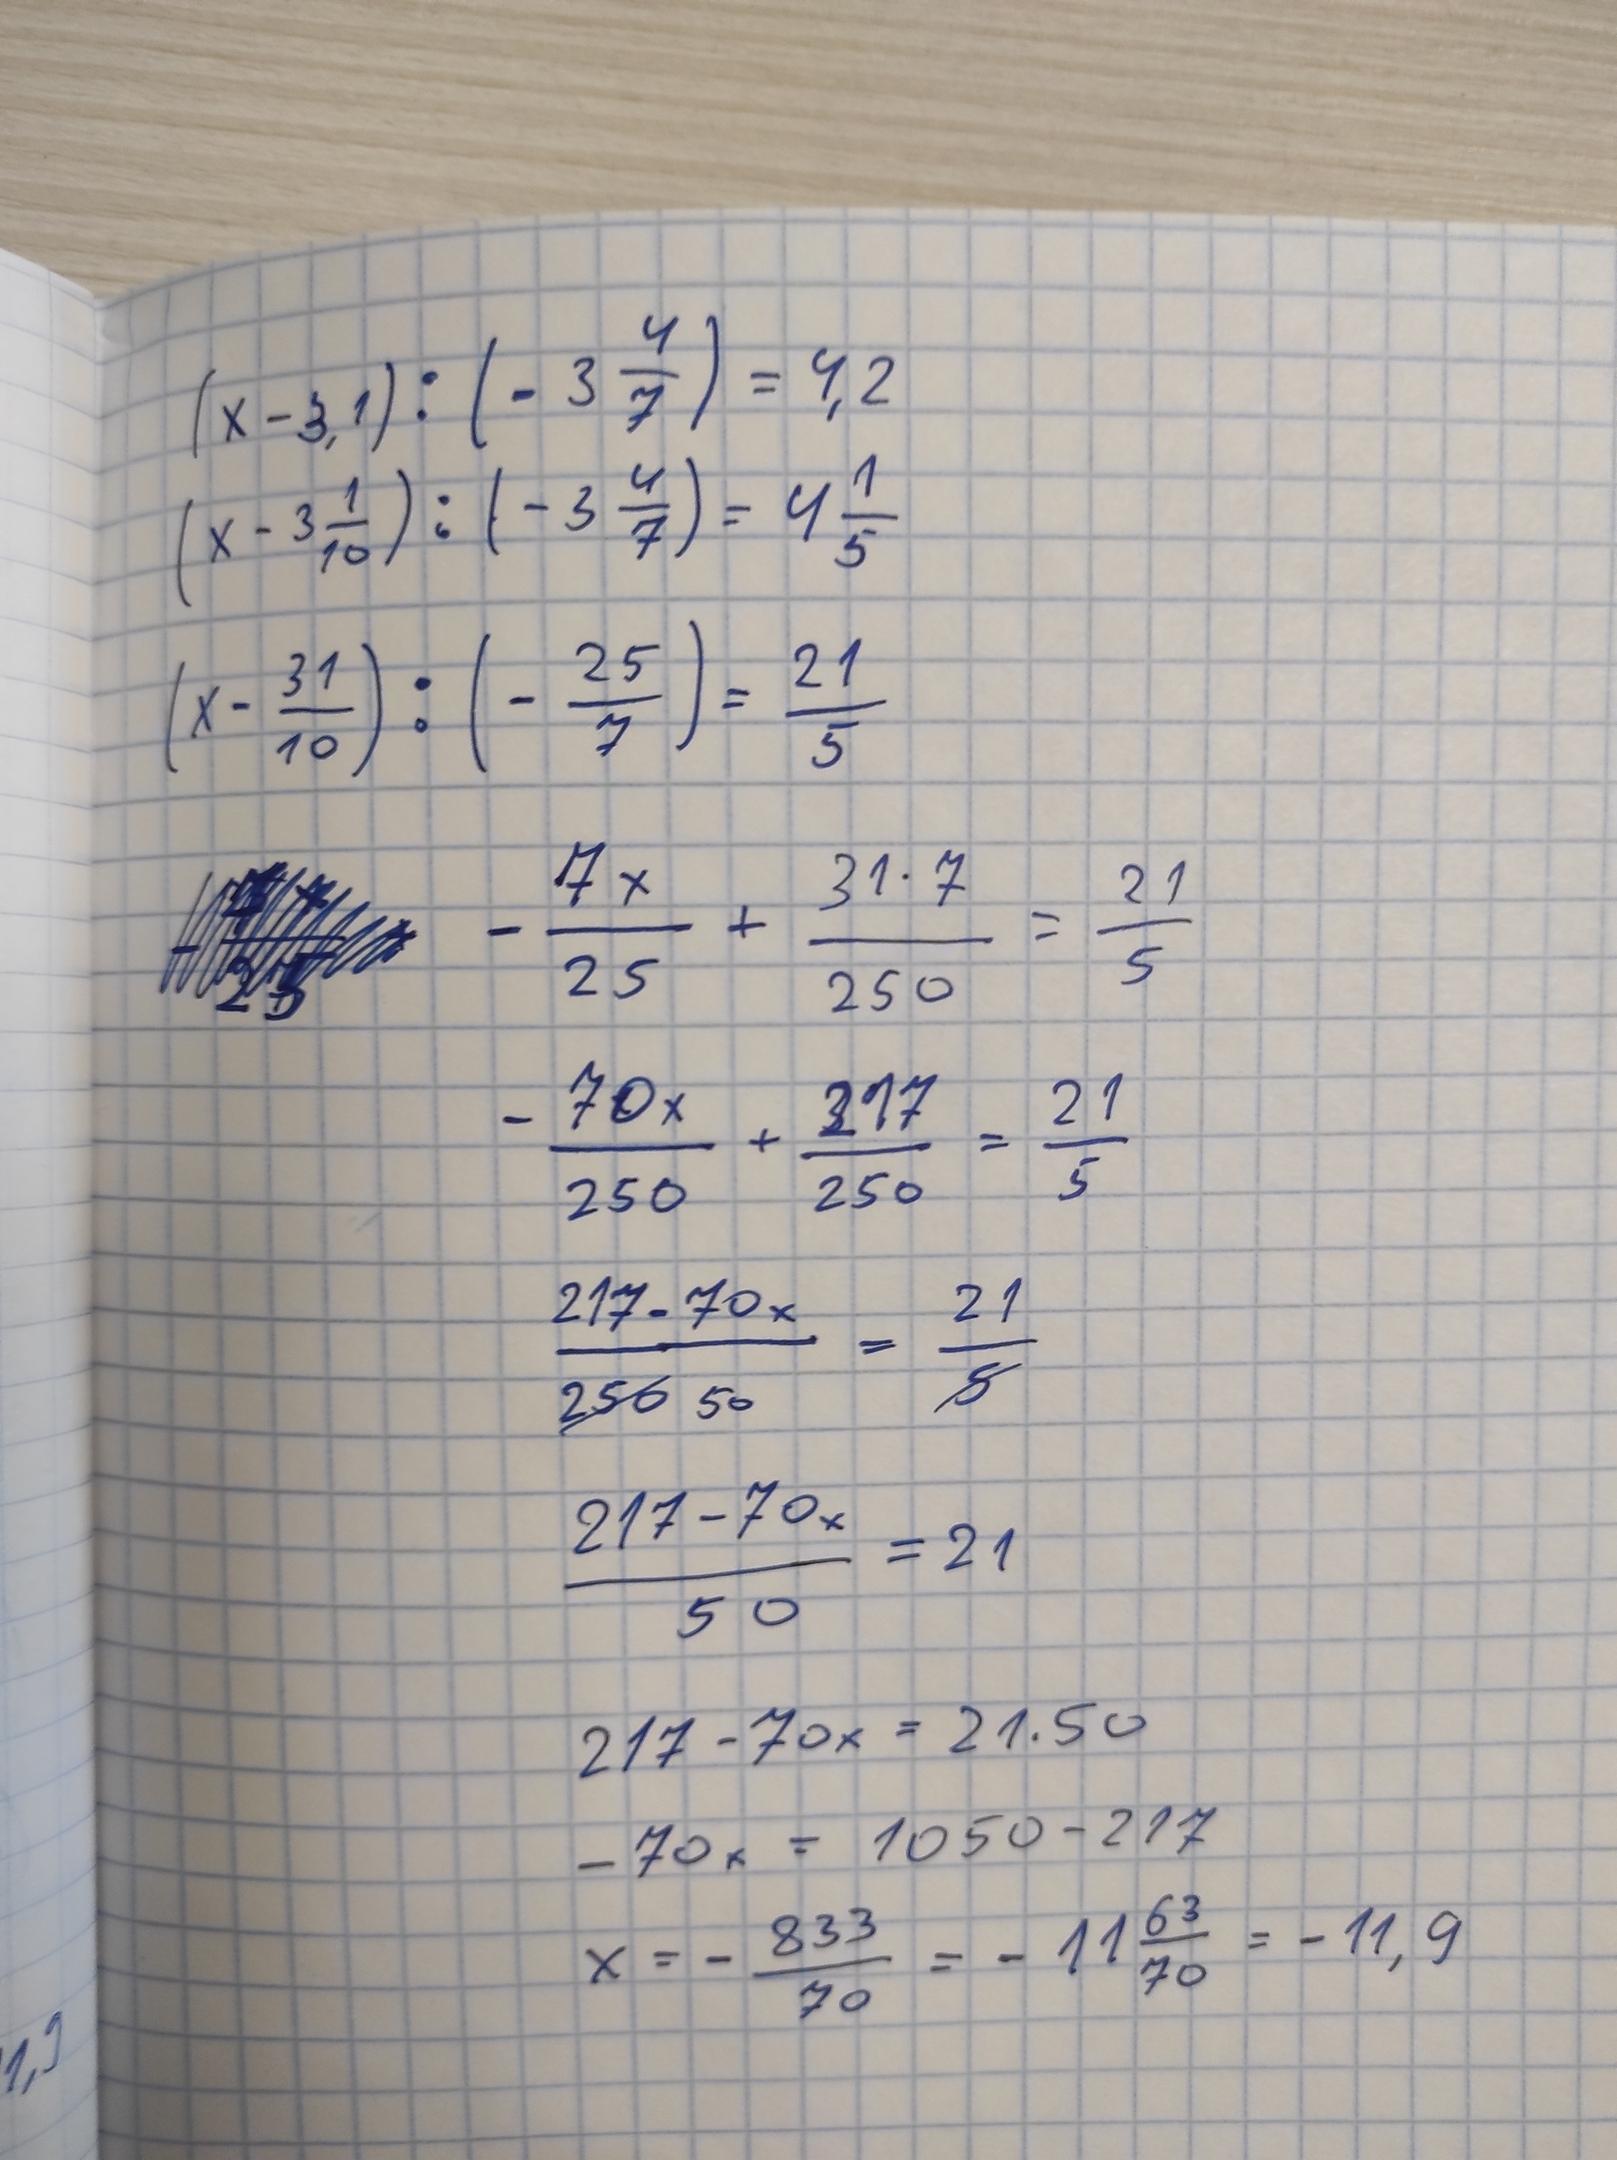 (x - 3,1) : (- 3 4/7) = 4,2
(x - 3 1/10) : (- 3 4/7) = 4 1/5
(x - 31/10) : (- 25/7) = 21/5
- 7x/25 + 31·7/250 = 21/5
- 70x/250 + 217/250 = 21/5
217 - 70x / 250 50 = 21/5
217 - 70x / 50 = 21
217 - 70x = 21·50
- 70x = 1050 - 217
x = - 833/70 = - 11 63/70 = - 11,9
1,9